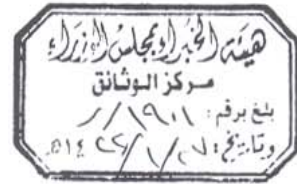 هيئة الخبراء بمجلس الوزراء
مركز الوثائق
بلغ برقم:
وتاريخ: ١٤هـ